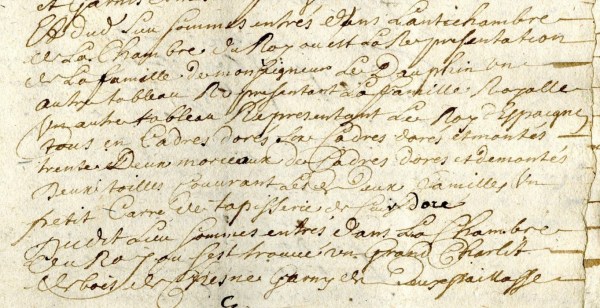 Et dud Lieu sommes entrés dans Lantichambre
de La Chambre du Roy ou est La Representation
de La famille de monseigneur Le Dauphin un
autre tableau Representant La famille Royalle
Un autre tableau Representant Le Roy d'Espaigne
tous en Cadres dorés six Cadres dorés et montés
trente deux morceaux de Cadres dores et demontés
Deux toilles couvrant les deux familles Un
petit Carré de tapisserie de Cuir dore
Dudit Lieu sommes entrés dans La Chambre
du Roy ou sest trouvé un Grand Charlit
de bois de fresne Garny de paillasse